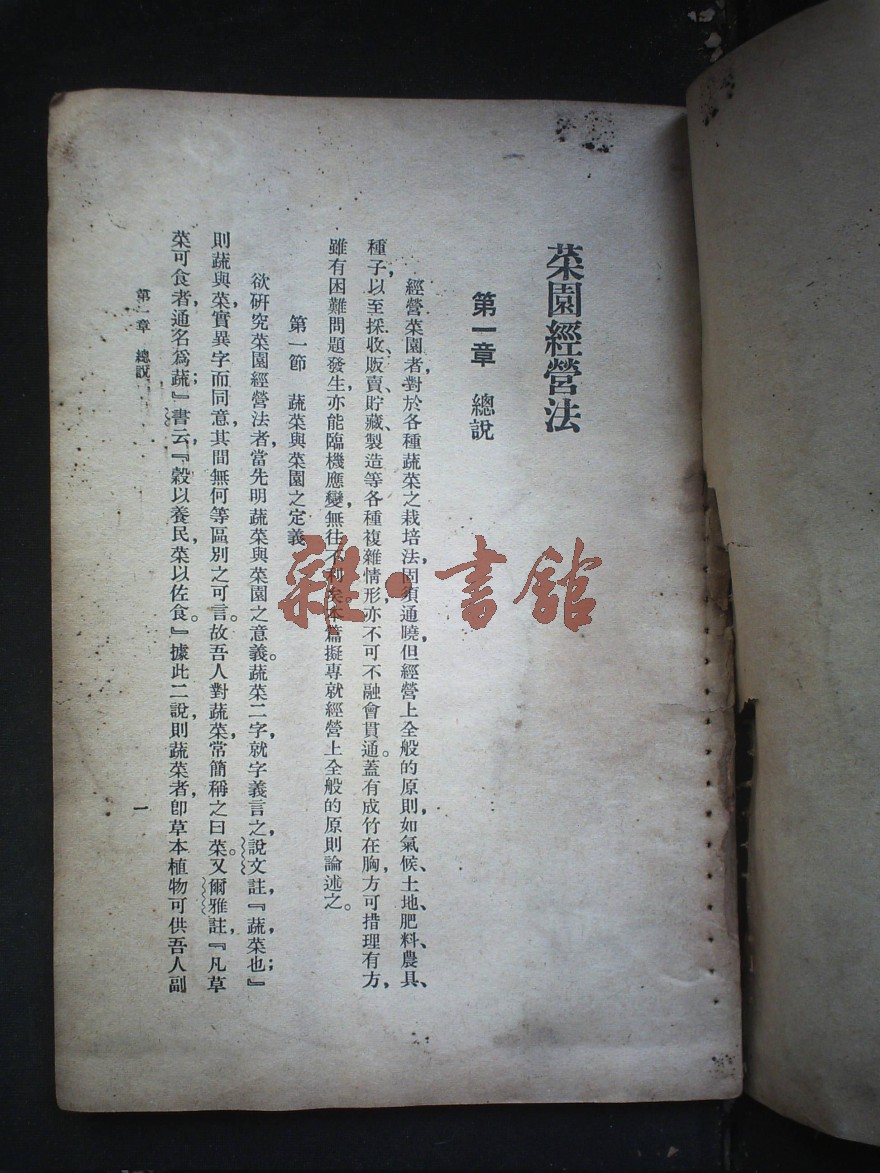 菜園經營法
第一章 總說
經營菜園者，對於各種蔬菜之栽培法，固須通曉，但經營上全般的原則，如氣候、土地、肥料、農具、
種子，以至採收、販賣、貯藏、製造等各種複雜情形，亦不可不融會貫通。蓋有成竹在胸，方可措理有方，
雖有困難問題發生，亦能臨機應變，無往不利矣。本篇擬專就經營上全般的原則論述之。
第一節 蔬菜與菜園之定義
欲研究菜園經營法者，當先明蔬菜與菜園之意義。蔬菜二字，就字義言之，說文註，『蔬菜也；』
則蔬與菜，實異字而同意，其間無何等區別之可言。故吾人對蔬菜，常簡稱之曰菜。又爾雅註，『凡草
菜可食者，通名爲蔬；』書云，『穀以養民，菜以佐食。』據此二說，則蔬菜者，卽草本植物可供吾人副
第一章 總說
一
雜·書館